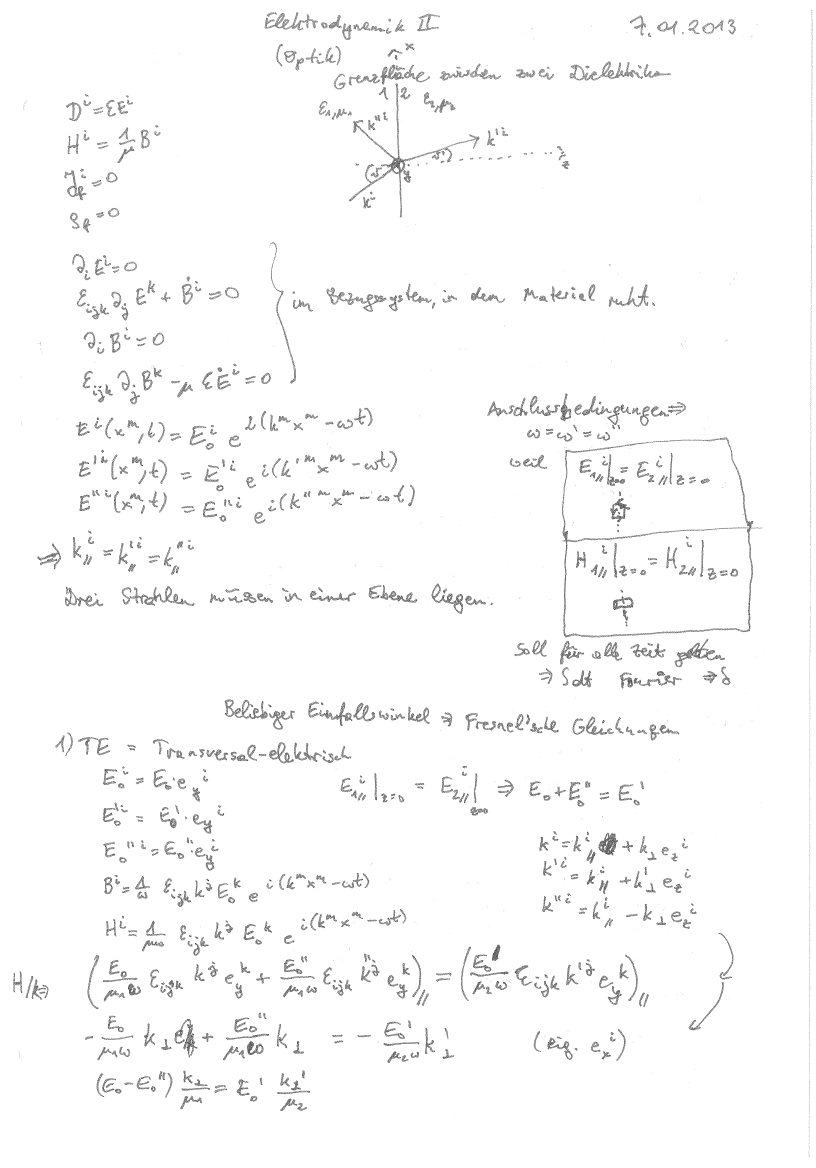 Elektrodynamik II
7.01.2013
(Optik)
Grenzfläche zwischen zwei Dielektrika
x
1 2
ε₁,μ₁ ε₂,μ₂
k''ⁱ
k'ⁱ
ϑ ϑ'
y
z
kⁱ
Dⁱ=εEⁱ
Hⁱ = 1/μ Bⁱ
j_fⁱ=0
ρ_f=0
∂ᵢEⁱ=0
ε_ijk ∂_j Eᵏ + Ḃⁱ=0
im Bezugssystem, in dem Material ruht.
∂ᵢBⁱ=0
ε_ijk ∂_j Bᵏ - με Ėⁱ=0
Eⁱ(xᵐ,t) = E₀ⁱ e^{i(kᵐxᵐ-ωt)}
E'ⁱ(xᵐ,t) = E₀'ⁱ e^{i(k'ᵐxᵐ-ωt)}
E''ⁱ(xᵐ,t) = E₀''ⁱ e^{i(k''ᵐxᵐ-ωt)}
⇒ k_//ⁱ = k_//'ⁱ = k_//''ⁱ
Drei Strahlen müssen in einer Ebene liegen.
Anschlussbedingungen ⇒
ω=ω'=ω''
weil
E_1//ⁱ|_z=0 = E_2//ⁱ|_z=0
H_1//ⁱ|_z=0 = H_2//ⁱ|_z=0
soll für alle Zeit gelten
⇒ ∫dt Fourier ⇒ δ
Beliebiger Einfallswinkel ⇒ Fresnel'sche Gleichungen
1) TE = Transversal-elektrisch
E₀ⁱ = E₀·e_yⁱ
E_1//ⁱ|_z=0 = E_2//ⁱ|_z=0 ⇒ E₀+E₀'' = E₀'
E₀'ⁱ = E₀'·e_yⁱ
E₀''ⁱ = E₀''·e_yⁱ
kⁱ=k_//ⁱ + k_⊥ e_zⁱ
k'ⁱ = k_//ⁱ + k_⊥' e_zⁱ
k''ⁱ = k_//ⁱ - k_⊥ e_zⁱ
Bⁱ = 1/ω ε_ijk kʲ E₀ᵏ e^{i(kᵐxᵐ-ωt)}
Hⁱ = 1/μω ε_ijk kʲ E₀ᵏ e^{i(kᵐxᵐ-ωt)}
(E₀/μ₁ω ε_ijk kʲ e_yᵏ + E₀''/μ₁ω ε_ijk k''ʲ e_yᵏ)_// = (E₀'/μ₂ω ε_ijk k'ʲ e_yᵏ)_//
- E₀/μ₁ω k_⊥ + E₀''/μ₁ω k_⊥ = - E₀'/μ₂ω k_⊥' (eig. e_xⁱ)
(E₀-E₀'') k_⊥/μ₁ = E₀' k_⊥'/μ₂